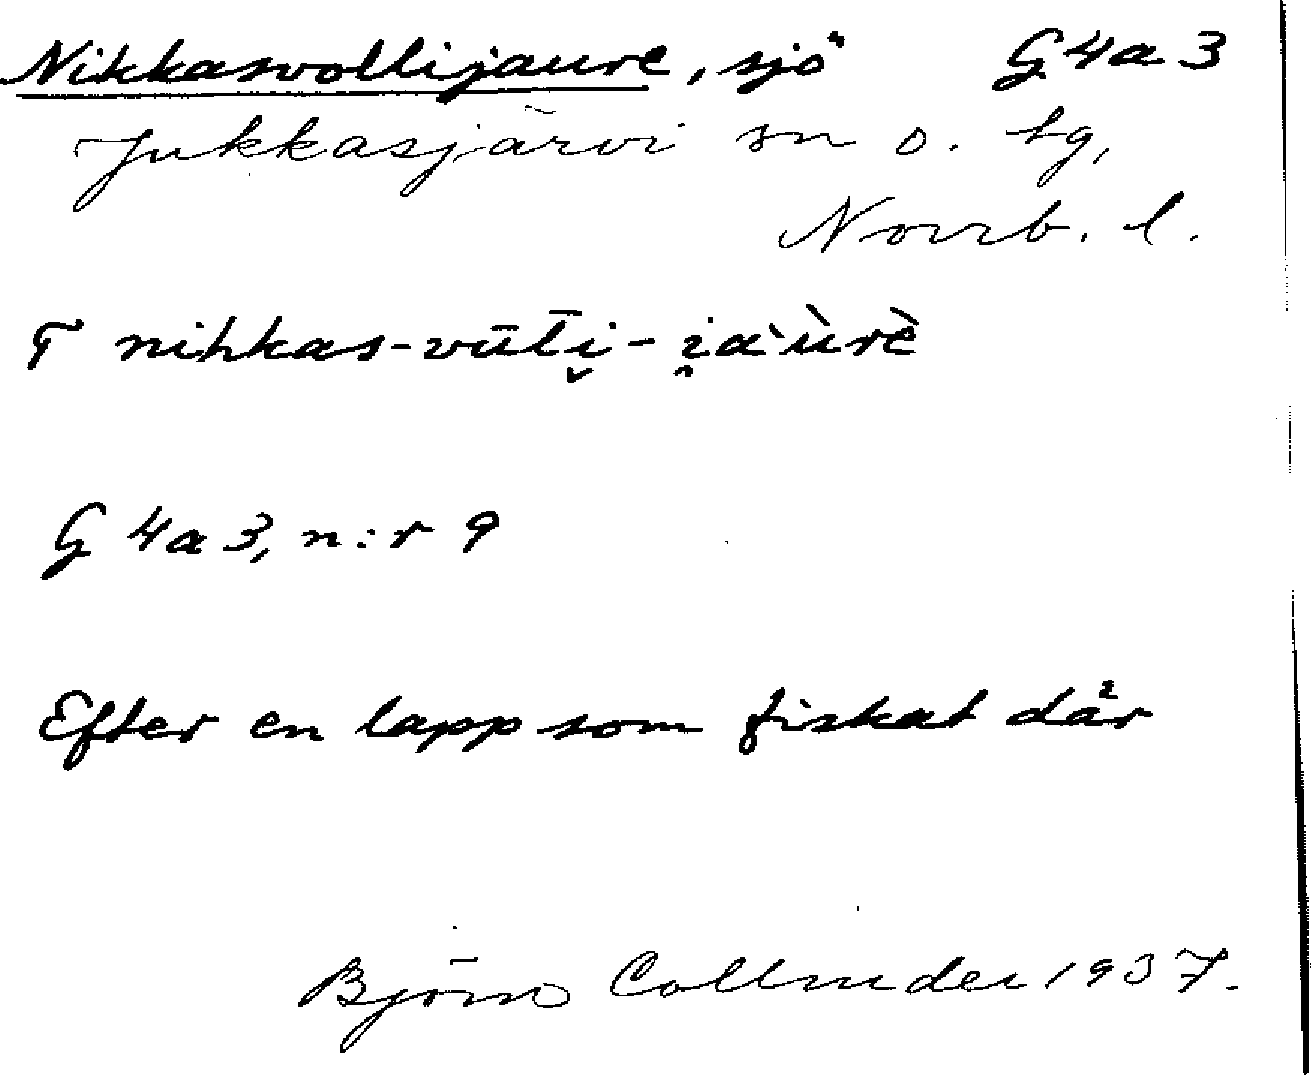 Nikkasvollijaure, sjö G4a3
Jukkasjärvi sn o. tg,
Norrb. l.
G 4a3, n:r 9
Efter en lapp som fiskat där
Björn Collinder 1937.